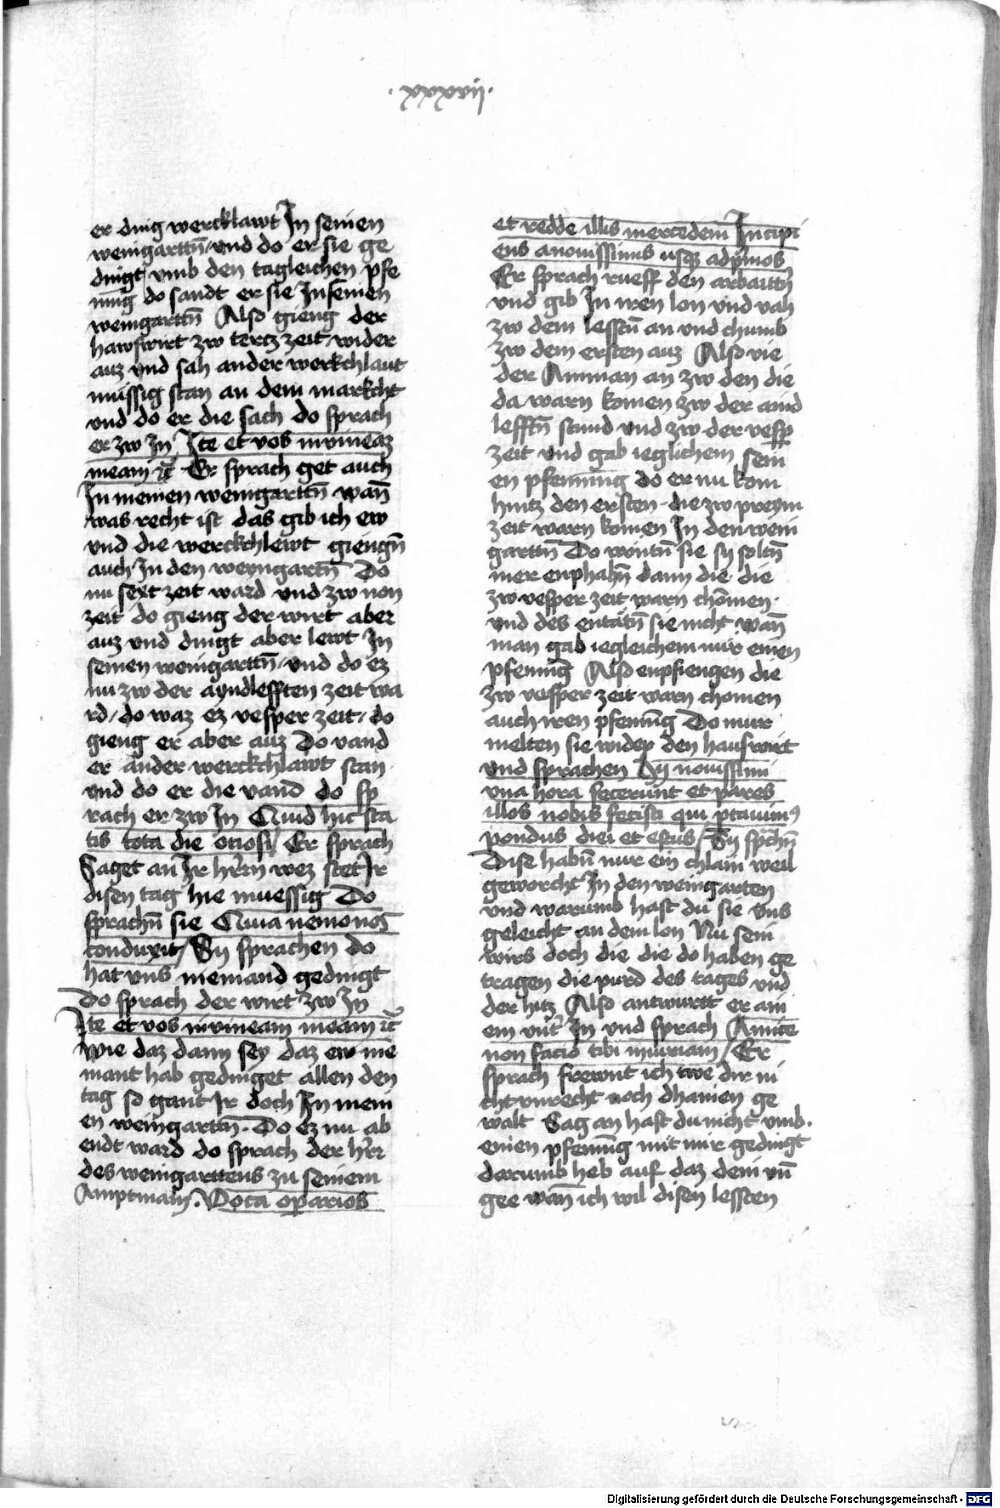 .xxxvij.
er ding wercklawt In seinen
weingarttn̄ und do er sie ge
dingt vmb den tagleichen pfe
ning do sandt er sie In seinen
weingarttn̄ Also gieng der
hawswirt zw tercz zeit wider
auz vnd sah ander werkchlaut
müssig stan an dem markcht
vnd do er die sach do sprach
er zw In Ite et vos in vineaz
meam ꝛc̄ Er sprach get auch
In meinen weingarttn̄ wan̄
was recht ist das gib ich ew
vnd die werckchlewt giengn̄
auch In den weyngartn̄ Do
nu sext zeit ward vnd zw non
zeit do gieng der wirt aber
auz vnd dingt aber lewt In
seinen weingarttn̄ / vnd do ez
nu zw der ayndlefften zeit wa
rd / do waz ez vesper zeit / do
gieng er aber auz Do vand
er ander werckchlawt stan
vnd do er die vand do sp
rach er zw In Quid hic sta
tis tota die otiosi / Er sprach
Saget an Ir hr̄rn wez stet Ir
disen tag hie muessig Do
sprachn̄ sie Quia nemo nos
conduxit / Sy sprachen do
hat vns niemand gedingt
Do sprach der wirt zw In
Ite et vos in vineam meam ꝛc̄
Wie daz dann sey daz ew nie
mant hab gedinget allen den
tag so gant Ir doch In mein
en weingarttn̄ . Do ez nu ab
endt ward do sprach der hr̄r
des weingarttens zu seinem
Amptmain . Voca operarios
et redde illis mercedem Incipi
ens a nouissimis usqꝫ ad pͥmos
Er sprach rueff den arbaittn̄
vnd gib In iren lon vnd vah
zw dem lesstn̄ an vnd chumb
zw dem ersten auz Also vie
der Amman an zw den die
da warn komen zw der aind
lefftn̄ stund vnd zw der vesp̄
zeit vnd gab ieglichem sein
en pfenning do er nu kom
hintz den ersten . die zw preym
zeit warn komen In den wein
garttn̄ Do wontn̄ sie sy soltn̄
mer enphahn̄ dann die die
zw vesper zeit warn chomen .
vnd des entatn̄ sie nicht wan̄
man gab iegleichem nür einen
pfening Also enpfiengen die
zw vesper zeit warn chomen
auch iren pfening Do mur
melten sie wider den hauswirt
vnd sprachen Hij nouissimi
vna hora fecerunt et pares
illos nobis fecisti qui ꝑtauimꝰ
pondus diei et estus / Sy sprachn̄
Dise habn̄ nur ein chlain weil
geworcht In den weingarten
vnd warumb hast du sie vns
geleicht an dem lon Nu sein
wirs doch die die do haben ge
tragen die purd des tages vnd
der hitz Also antwurtt er ain
em vnt̄ In vnd sprach Amice
non facio tibi iniuriam / Er
sprach frewnt ich twe dir ni
cht vnrecht noch dhainen ge
walt Sag an hast du nicht vmb .
einen pfenning mit mir gedingt
darumb heb auf daz dein vn̄
gee wan̄ ich wil disen lessten
Digitalisierung gefördert durch die Deutsche Forschungsgemeinschaft - DFG